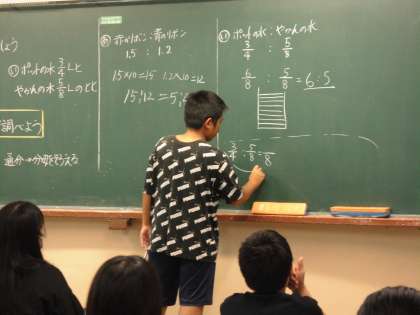 しょう
ポットの水 3/4 Lと
やかんの水 5/8 Lのとき
調べよう
通分→分母をそろえる
赤のリボン:青のリボン
1.5 : 1.2
1.5×10=15 1.2×10=12
15:12=5:
ポットの水:やかんの水
3/4 : 5/8
6/8 : 5/8 = 6:5
3/4 : 5/8 = /8